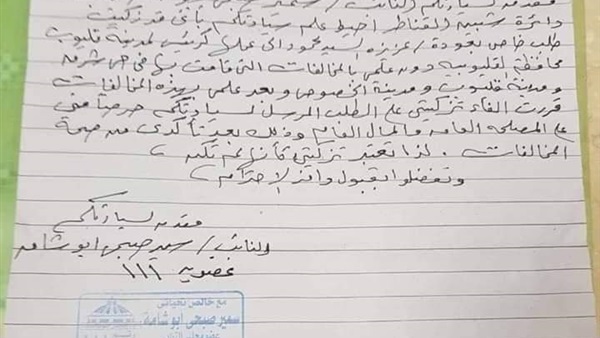 مقدمه لسيادتكم النائب / سمير
دائرة شبين القناطر احيط علم سيادتكم بأنى قد زكيت
طلب خاص بعودة / عزيزه السيد محمود الى عملها كرئيس لمدينة قليوب
محافظة القليوبية دون علمى بالمخالفات التى قامت بها فى حى شرق
ومدينة قليوب ومدينة الخصوص وبعد علمى بهذه المخالفات
قررت الغاء تزكيتى على الطلب المرسل لسيادتكم حرصا منى
على المصلحة العامه والمال العام وذلك بعد تأكدى من صحة
المخالفات . لذا تعتبر تزكيتى كأنها لم تكن ،
وتفضلوا بقبول وافر الاحترام ،
مقدمه لسيادتكم
النائب / سمير صبحى ابو شامه
عضوية ١١١
مع خالص تحياتى
سمير صبحى ابوشامة
عضو مجلس النواب